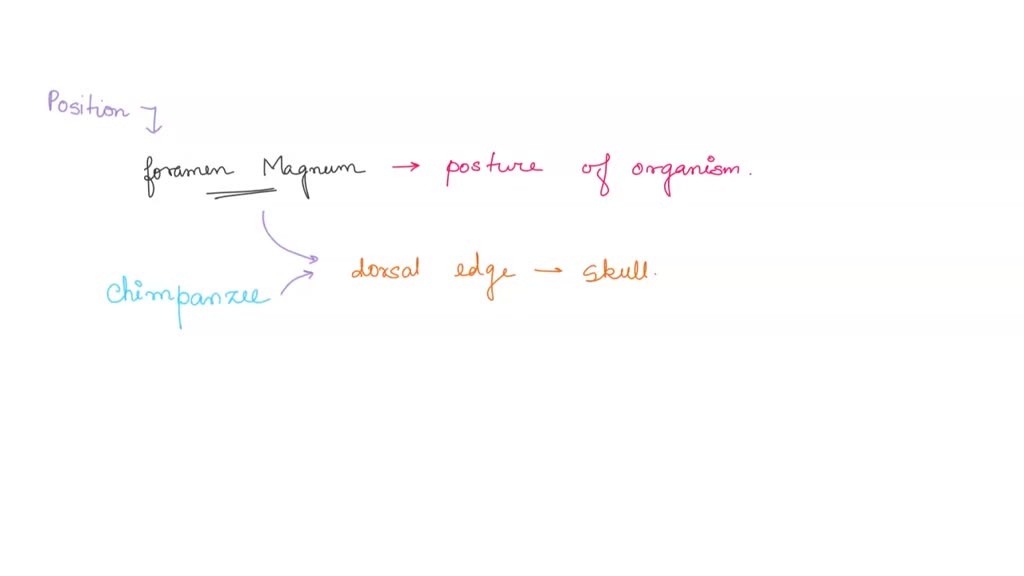 Position
foramen Magnum → posture of organism.
dorsal edge — skull.
chimpanzee